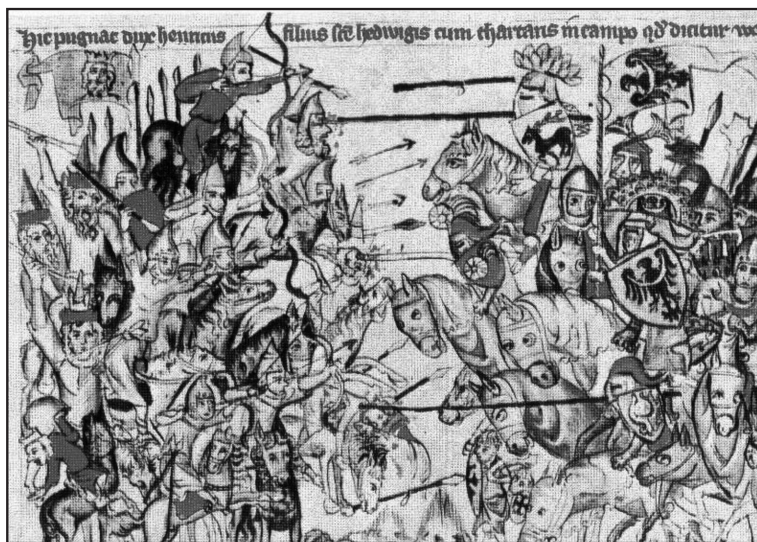 Hic pugnat dux henricus filius sce hedwigis cum thartaris in campo qd dicitur